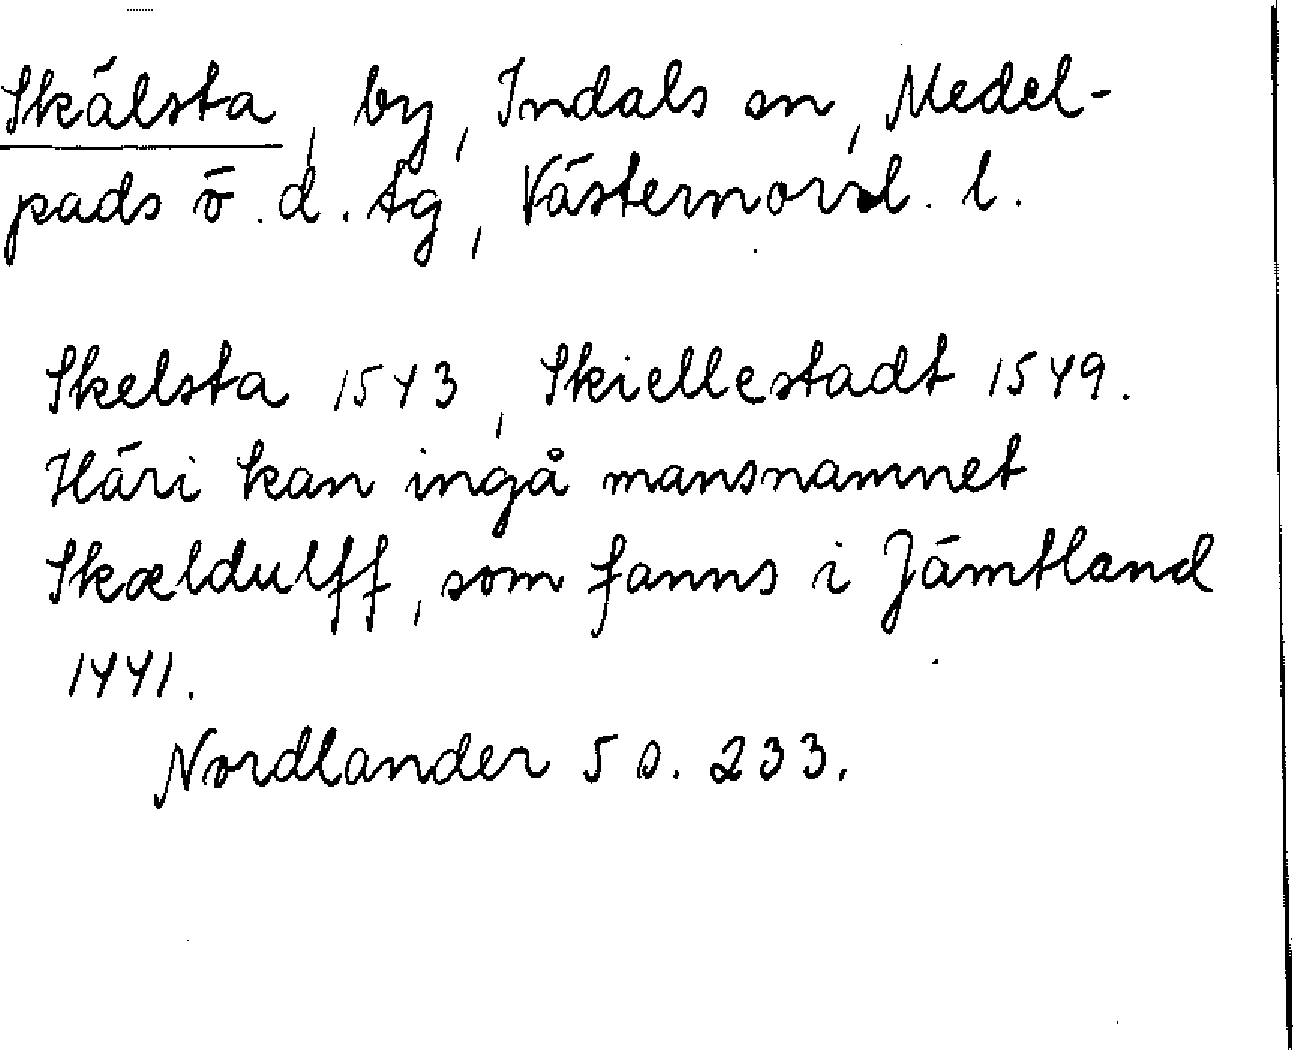 Skälsta, by, Indals sn, Medel-
pads ö. d. tg, Västernorrl. l.
Skelsta 1543, Skiellestadt 1549.
Häri kan ingå mansnamnet
Skældulff, som fanns i Jämtland
1441.
Nordlander 5 s. 233.